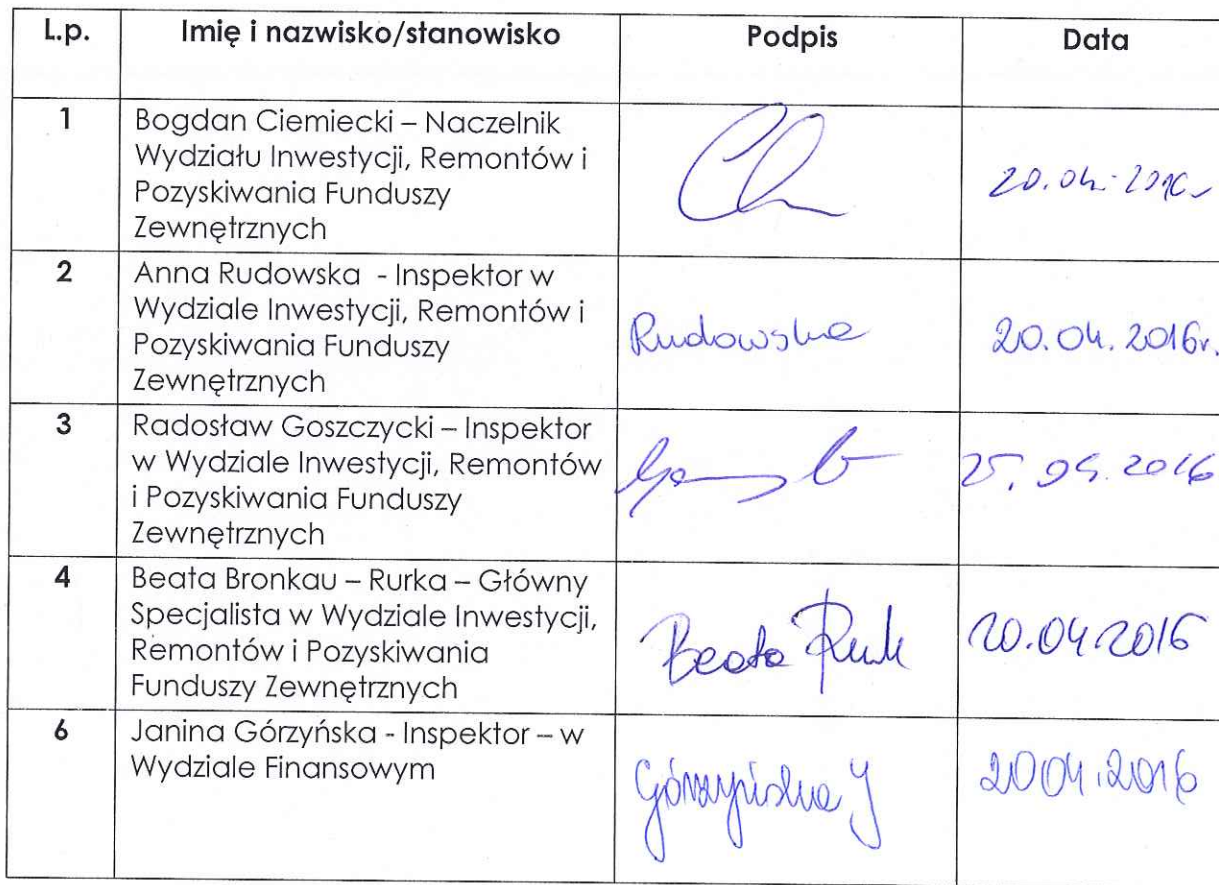 L.p. Imię i nazwisko/stanowisko Podpis Data
1 Bogdan Ciemiecki – Naczelnik
Wydziału Inwestycji, Remontów i
Pozyskiwania Funduszy
Zewnętrznych
20.04.2016r
2 Anna Rudowska - Inspektor w
Wydziale Inwestycji, Remontów i
Pozyskiwania Funduszy
Zewnętrznych
Rudowska 20.04.2016r.
3 Radosław Goszczycki – Inspektor
w Wydziale Inwestycji, Remontów
i Pozyskiwania Funduszy
Zewnętrznych
2016
4 Beata Bronkau – Rurka – Główny
Specjalista w Wydziale Inwestycji,
Remontów i Pozyskiwania
Funduszy Zewnętrznych
Beata 20.04.2016
6 Janina Górzyńska - Inspektor – w
Wydziale Finansowym
Górzyńska J 2004.2016